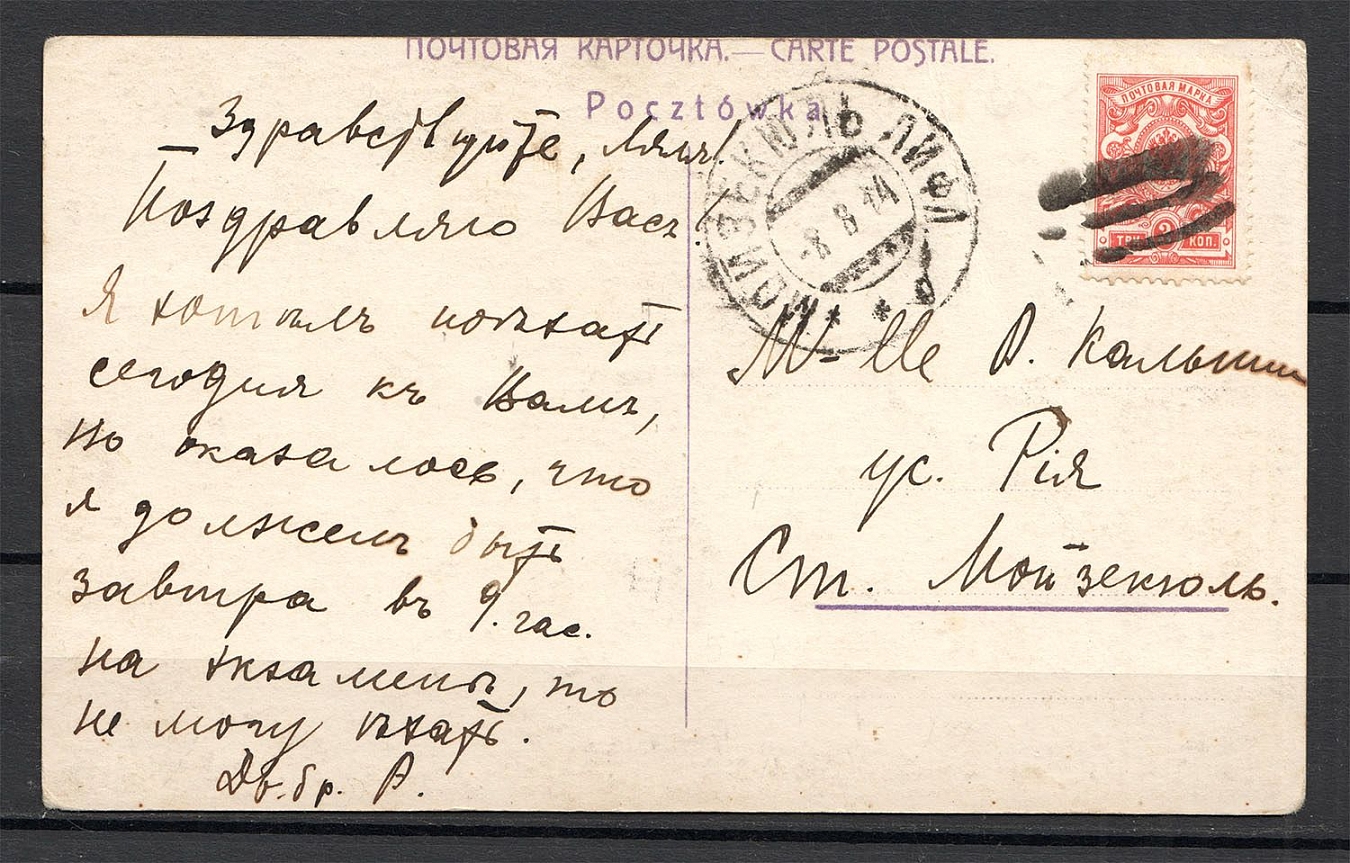 ПОЧТОВАЯ КАРТОЧКА.—CARTE POSTALE.
Pocztówka
Здравствуйте, Ляля!
Поздравляю Васъ!
Я хотѣлъ поѣхать
сегодня къ Вамъ,
но оказалось, что
я долженъ быть
завтра въ 9. час.
на экзаменъ, то
не могу ѣхать.
Дв. бр. А.
ПОЧТОВАЯ МАРКА
ТРИ 3 КОП.
МОЙЗЕКЮЛЬ ЛИФЛ
8 8 14
M-lle А.
ус. Рія
Ст. Мойзекюль.